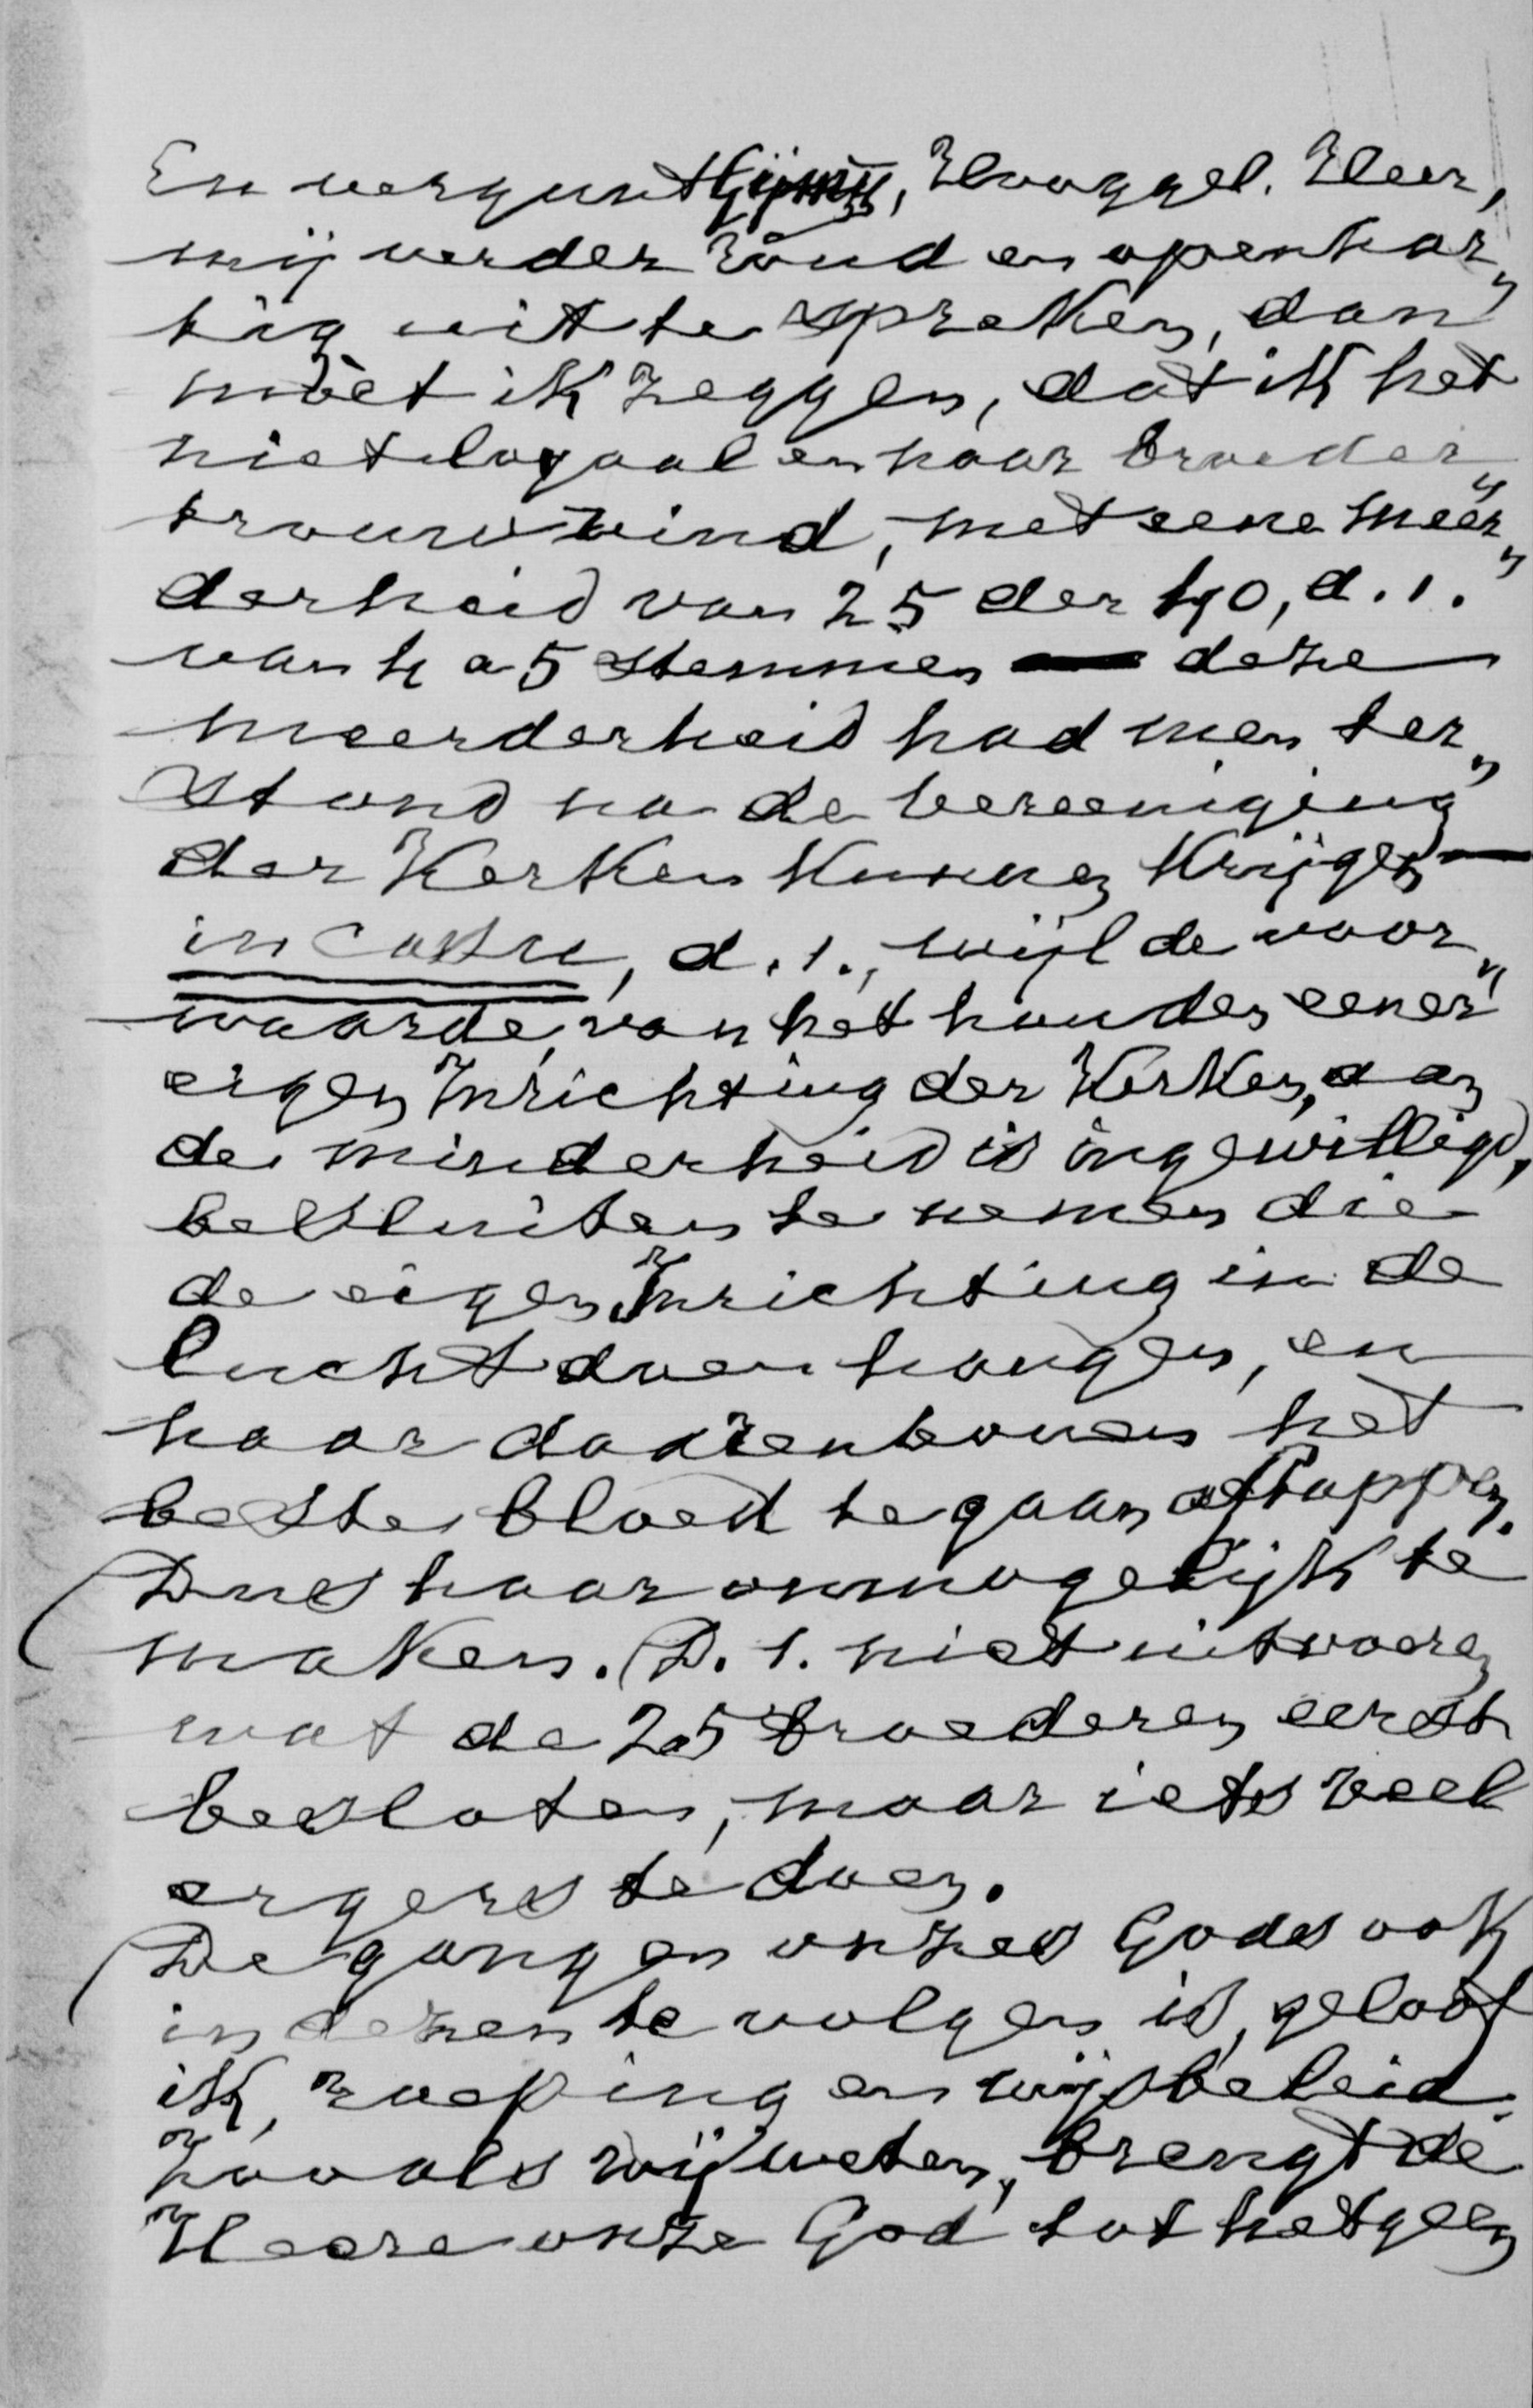 En vergunt Gij mij, Hooggel. Heer,
mij verder rond en openhar„
tig uit te spreken, dan
moet ik zeggen, dat ik het
niet loyaal en naar broeder„
trouw vind, met eene meer„
derheid van 25 der 40, d. i.
van 4 a 5 stemmen — deze
meerderheid had men ter„
stond na de vereeniging
der Kerken kunnen krijgen —
in casu, d. i., wijl de voor„
waarde, van het houden eener
eigen Inrichting der Kerken, aan
de minderheid is ingewilligd,
besluiten te nemen die
de eigen Inrichting in de
lucht doen hangen, en
haar daarenboven het
beste bloed te gaan aftappen.
Dus haar onmogelijk te
maken. D. i. niet uitvoeren
wat de 25 broederen eerst
besloten, maar iets veel
ergers te doen.
De gangen onzes Gods ook
in dezen te volgen is, geloof
ik, roeping en wijs beleid.
Zooals wij weten, brengt de
Heere onze God tot hetgeen